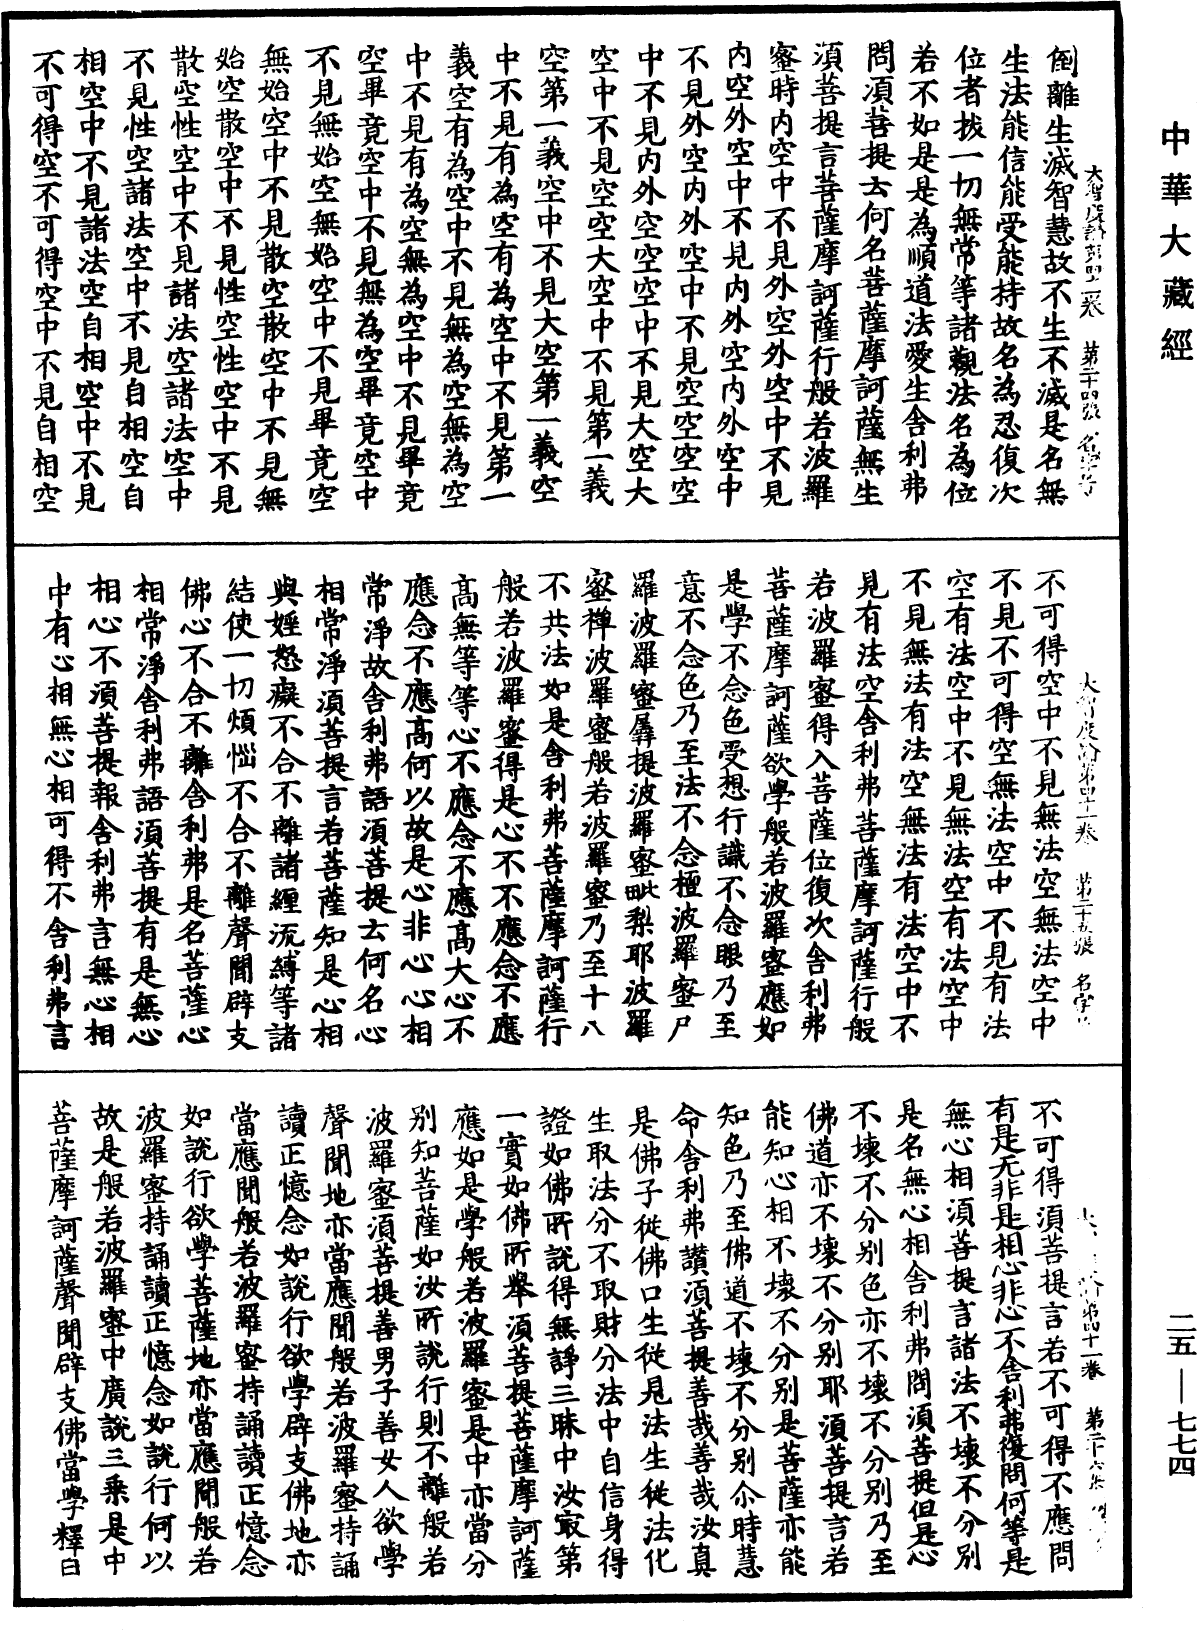 中華大藏經
倒離生滅智慧故不生不滅是名無
生法能信能受能持故名為忍復次
位者拔一切無常等諸觀法名為位
若不如是是為順道法愛生舍利弗
問須菩提云何名菩薩摩訶薩無生
須菩提言菩薩摩訶薩行般若波羅
蜜時內空中不見外空外空中不見
內空外空中不見內外空內外空中
不見外空內外空中不見空空空空
中不見內外空空空中不見大空大
空中不見空空大空中不見第一義
空第一義空中不見大空第一義空
中不見有為空有為空中不見第一
義空有為空中不見無為空無為空
中不見有為空無為空中不見畢竟
空畢竟空中不見無為空畢竟空中
不見無始空無始空中不見畢竟空
無始空中不見散空散空中不見無
始空散空中不見性空性空中不見
散空性空中不見諸法空諸法空中
不見性空諸法空中不見自相空自
相空中不見諸法空自相空中不見
不可得空不可得空中不見自相空
大智度論第四十一卷 第二十五張 名字
不可得空中不見無法空無法空中
不見不可得空無法空中不見有法
空有法空中不見無法空有法空中
不見無法有法空無法有法空中不
見有法空舍利弗菩薩摩訶薩行般
若波羅蜜得入菩薩位復次舍利弗
菩薩摩訶薩欲學般若波羅蜜應如
是學不念色受想行識不念眼乃至
意不念色乃至法不念檀波羅蜜尸
羅波羅蜜羼提波羅蜜毗梨耶波羅
蜜禪波羅蜜般若波羅蜜乃至十八
不共法如是舍利弗菩薩摩訶薩行
般若波羅蜜得是心不不應念不應
高無等等心不應念不應高大心不
應念不應高何以故是心非心心相
常淨故舍利弗語須菩提云何名心
相常淨須菩提言若菩薩知是心相
與婬怒癡不合不離諸纏流縛等諸
結使一切煩惱不合不離聲聞辟支
佛心不合不離舍利弗是名菩薩心
相常淨舍利弗語須菩提有是無心
相心不須菩提報舍利弗言無心相
中有心相無心相可得不舍利弗言
第四十一卷 第二十六張
不可得須菩提言若不可得不應問
有是无非是相心非心不舍利弗復問何等是
無心相須菩提言諸法不壞不分別
是名無心相舍利弗問須菩提但是心
不壞不分別色亦不壞不分別乃至
佛道亦不壞不分別耶須菩提言若
能知心相不壞不分別是菩薩亦能
知色乃至佛道不壞不分別尒時慧
命舍利弗讚須菩提善哉善哉汝真
是佛子從佛口生從見法生從法化
生取法分不取財分法中自信身得
證如佛所說得無諍三昧中汝㝡第
一實如佛所舉須菩提菩薩摩訶薩
應如是學般若波羅蜜是中亦當分
別知菩薩如汝所說行則不離般若
波羅蜜須菩提善男子善女人欲學
聲聞地亦當應聞般若波羅蜜持誦
讀正憶念如說行欲學辟支佛地亦
當應聞般若波羅蜜持誦讀正憶念
如說行欲學菩薩地亦當應聞般若
波羅蜜持誦讀正憶念如說行何以
故是般若波羅蜜中廣說三乘是中
菩薩摩訶薩聲聞辟支佛當學釋曰
二五—七七四